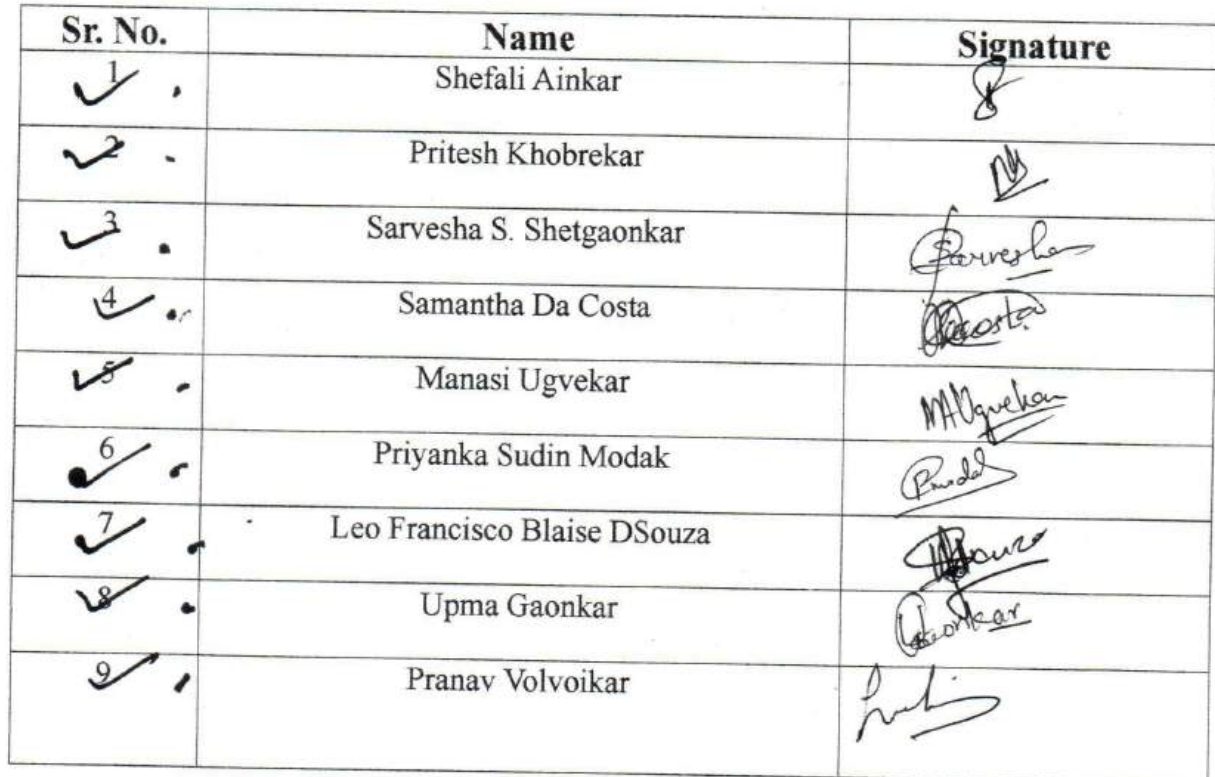 Sr. No. Name Signature
1 Shefali Ainkar
2 Pritesh Khobrekar
3 Sarvesha S. Shetgaonkar Sarvesha
4 Samantha Da Costa
5 Manasi Ugvekar MAUgvekar
6 Priyanka Sudin Modak
7 Leo Francisco Blaise DSouza
8 Upma Gaonkar Gaonkar
9 Pranav Volvoikar